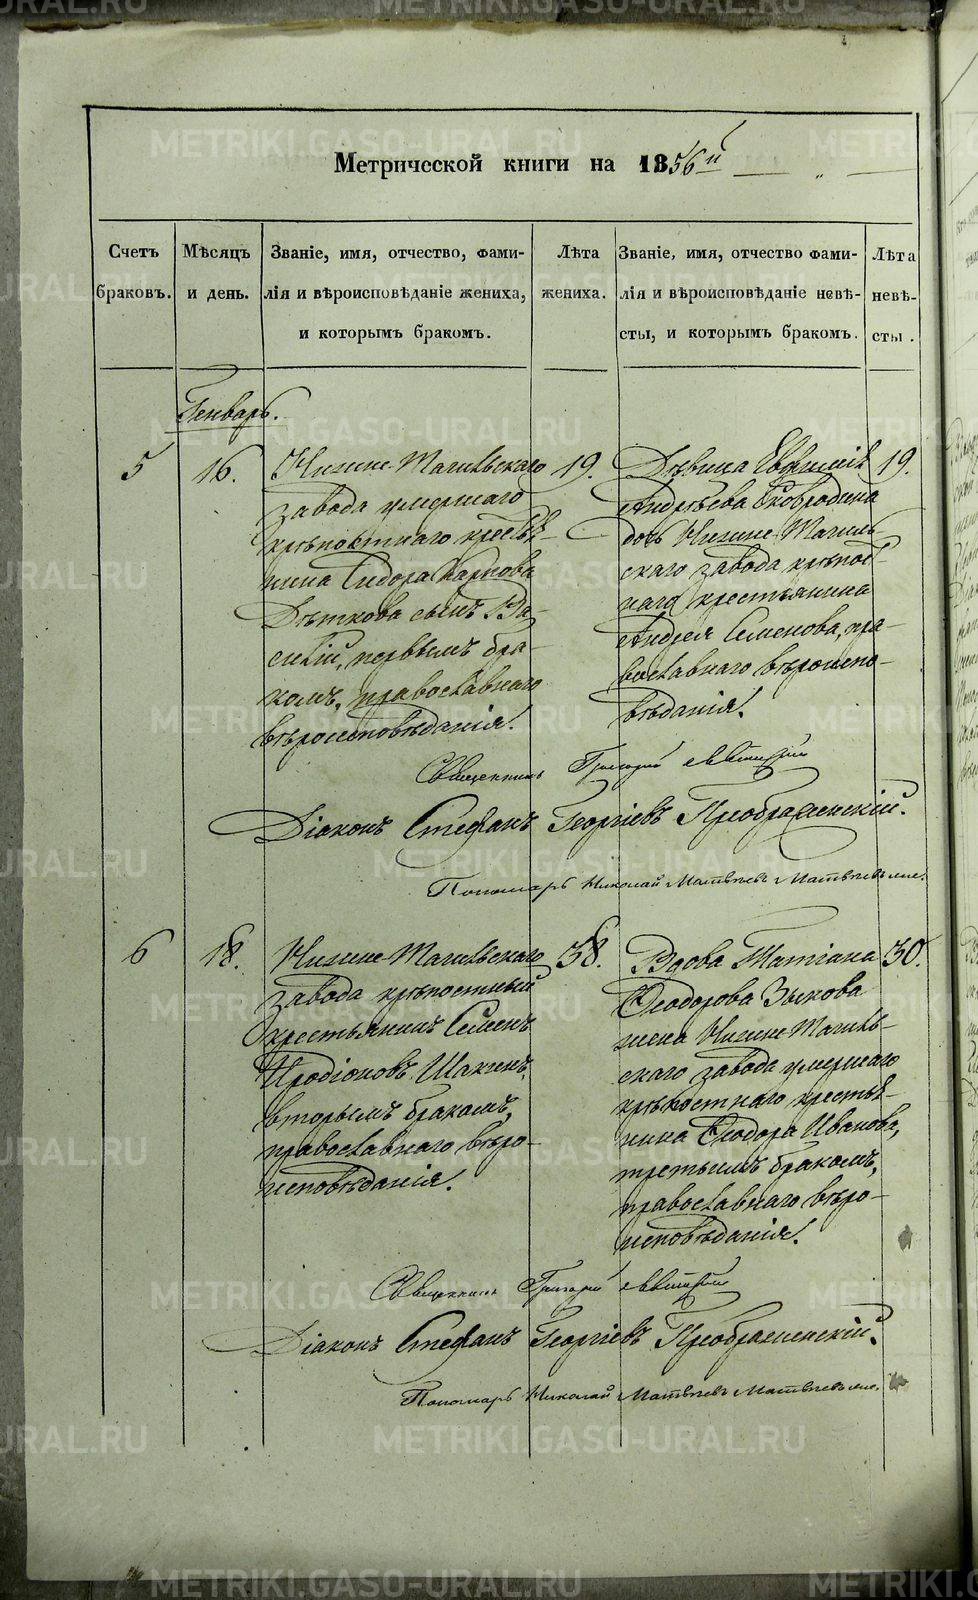 Метрической книги на 1856й
Счетъ браковъ.
Мѣсяцъ и день.
Званіе, имя, отчество, фами-
лія и вѣроисповѣданіе жениха,
и которымъ бракомъ.
Лѣта жениха.
Званіе, имя, отчество фами-
лія и вѣроисповѣданіе невѣ-
сты, и которымъ бракомъ.
Лѣта невѣ-
сты.
Генварь.
5
16.
Нижне-Тагильскаго
завода умершаго
крѣпостнаго крестья-
нина Сидора Карпова
Дѣткова сынъ Ва-
силій, первымъ бра-
комъ, православнаго
вѣроисповѣданія.
19.
Дѣвица Евфимія
Андреѣва Сковородина
дочь Нижне-Тагиль-
скаго завода крѣпост-
наго крестьянина
Андрея Семенова, пра-
вославнаго вѣроиспо-
вѣданія.
19.
Священникъ Григорій
Діаконъ Стефанъ Георгіевъ Преображенскій.
Пономарь Николай Матвѣевъ
6
18.
Нижне-Тагильскаго
завода крѣпостный
крестьянинъ Семенъ
Иродіоновъ
вторымъ бракомъ,
православнаго вѣро-
исповѣданія.
38.
Вдова Татіана
Ѳеодорова Зыкова
жена Нижне-Тагиль-
скаго завода умершаго
крѣпостнаго крестья-
нина Ѳеодора Иванова,
третьимъ бракомъ,
православнаго вѣро-
исповѣданія.
30.
Священникъ Григорій
Діаконъ Стефанъ Георгіевъ Преображенскій.
Пономарь Николай Матвѣевъ
METRIKI.GASO-URAL.RU